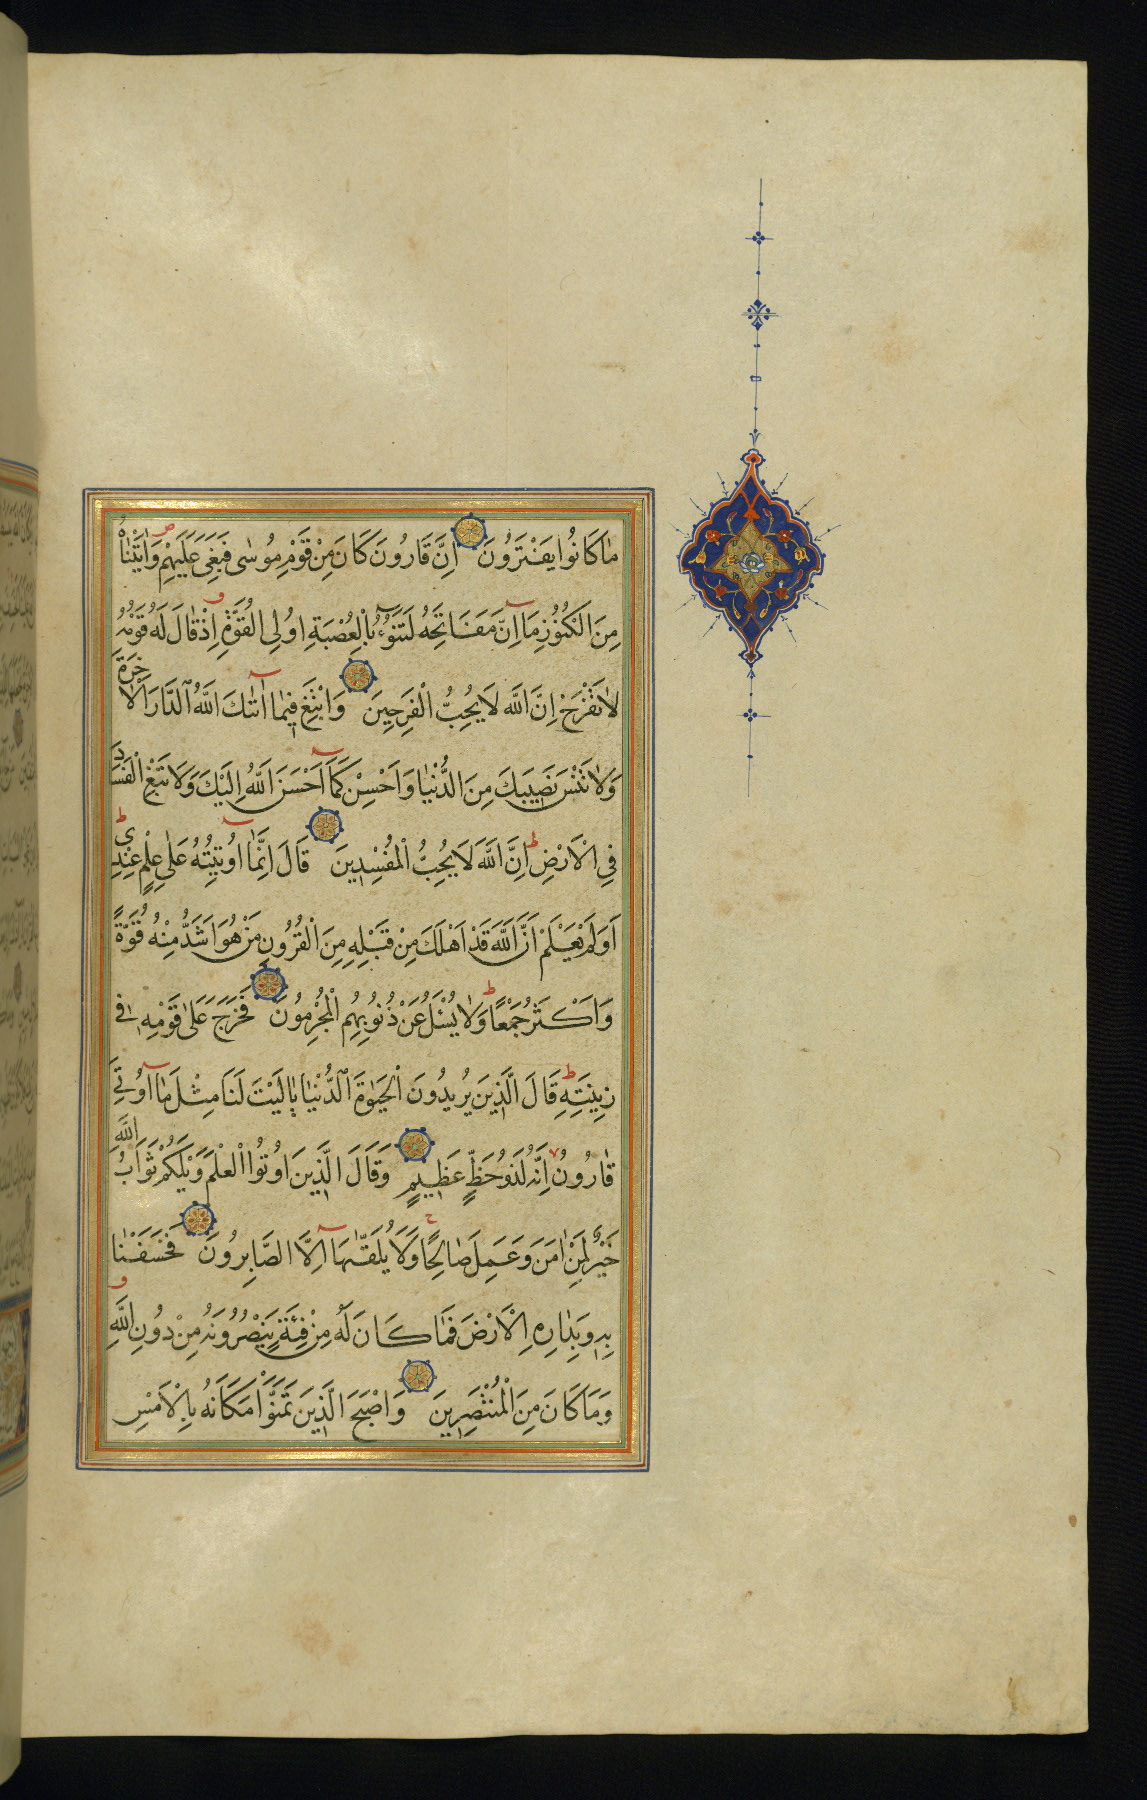 مَا كَانُوا يَفْتَرُونَ اِنَّ قَارُونَ كَانَ مِنْ قَوْمِ مُوسٰى فَبَغٰى عَلَيْهِمْ وَاٰتَيْنَاهُ
مِنَ الْكُنُوْزِ مَا اِنَّ مَفَاتِحَهُ لَتَنُوْءُ بِالْعُصْبَةِ اُولِى الْقُوَّةِ اِذْ قَالَ لَهُ قَوْمُهُ
لَا تَفْرَحْ اِنَّ اللّٰهَ لَا يُحِبُّ الْفَرِحِينَ وَابْتَغِ فِيمَا اٰتٰىكَ اللّٰهُ الدَّارَ الْاٰخِرَةَ
وَلَا تَنْسَ نَصِيبَكَ مِنَ الدُّنْيَا وَاَحْسِنْ كَمَا اَحْسَنَ اللّٰهُ اِلَيْكَ وَلَا تَبْغِ الْفَسَادَ
فِي الْاَرْضِ ط اِنَّ اللّٰهَ لَا يُحِبُّ الْمُفْسِدِينَ قَالَ اِنَّمَا اُوتِيتُهُ عَلٰى عِلْمٍ عِنْدِى ط
اَوَلَمْ يَعْلَمْ اَنَّ اللّٰهَ قَدْ اَهْلَكَ مِنْ قَبْلِهِ مِنَ الْقُرُونِ مَنْ هُوَ اَشَدُّ مِنْهُ قُوَّةً
وَاَكْثَرُ جَمْعًا ط وَلَا يُسْئَلُ عَنْ ذُنُوبِهِمُ الْمُجْرِمُونَ فَخَرَجَ عَلٰى قَوْمِهِ فِى
زِينَتِهِ ط قَالَ الَّذِينَ يُرِيدُونَ الْحَيٰوةَ الدُّنْيَا يَا لَيْتَ لَنَا مِثْلَ مَا اُوتِيَ
قَارُونُ اِنَّهُ لَذُو حَظٍّ عَظِيمٍ وَقَالَ الَّذِينَ اُوتُوا الْعِلْمَ وَيْلَكُمْ ثَوَابُ اللّٰهِ
خَيْرٌ لِمَنْ اٰمَنَ وَعَمِلَ صَالِحًا ج وَلَا يُلَقّٰىهَا اِلَّا الصَّابِرُونَ فَخَسَفْنَا
بِهِ وَبِدَارِهِ الْاَرْضَ فَمَا كَانَ لَهُ مِنْ فِئَةٍ يَنْصُرُونَهُ مِنْ دُونِ اللّٰهِ
وَمَا كَانَ مِنَ الْمُنْتَصِرِينَ وَاَصْبَحَ الَّذِينَ تَمَنَّوْا مَكَانَهُ بِالْاَمْسِ